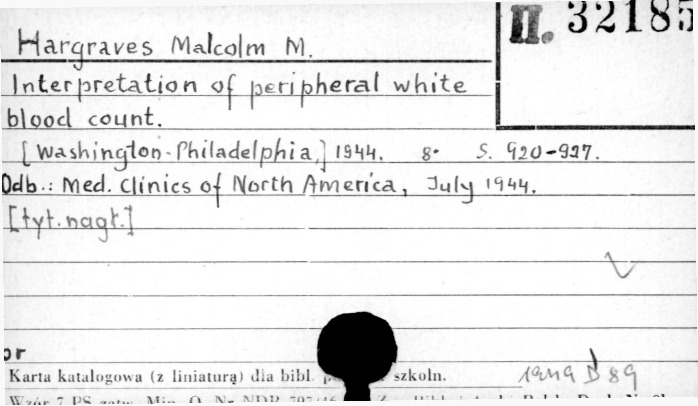 II. 32185
Hargraves Malcolm M.
Interpretation of peripheral white
blood count.
[Washington-Philadelphia,] 1944. 8° S. 920-927.
Odb.: Med. Clinics of North America, July 1944.
[tyt. nagł.]
or
Karta katalogowa (z liniaturą) dla bibl. szkoln.
1949 D 89
Wzór 7 PS zatw. Min. O. Nr NDR